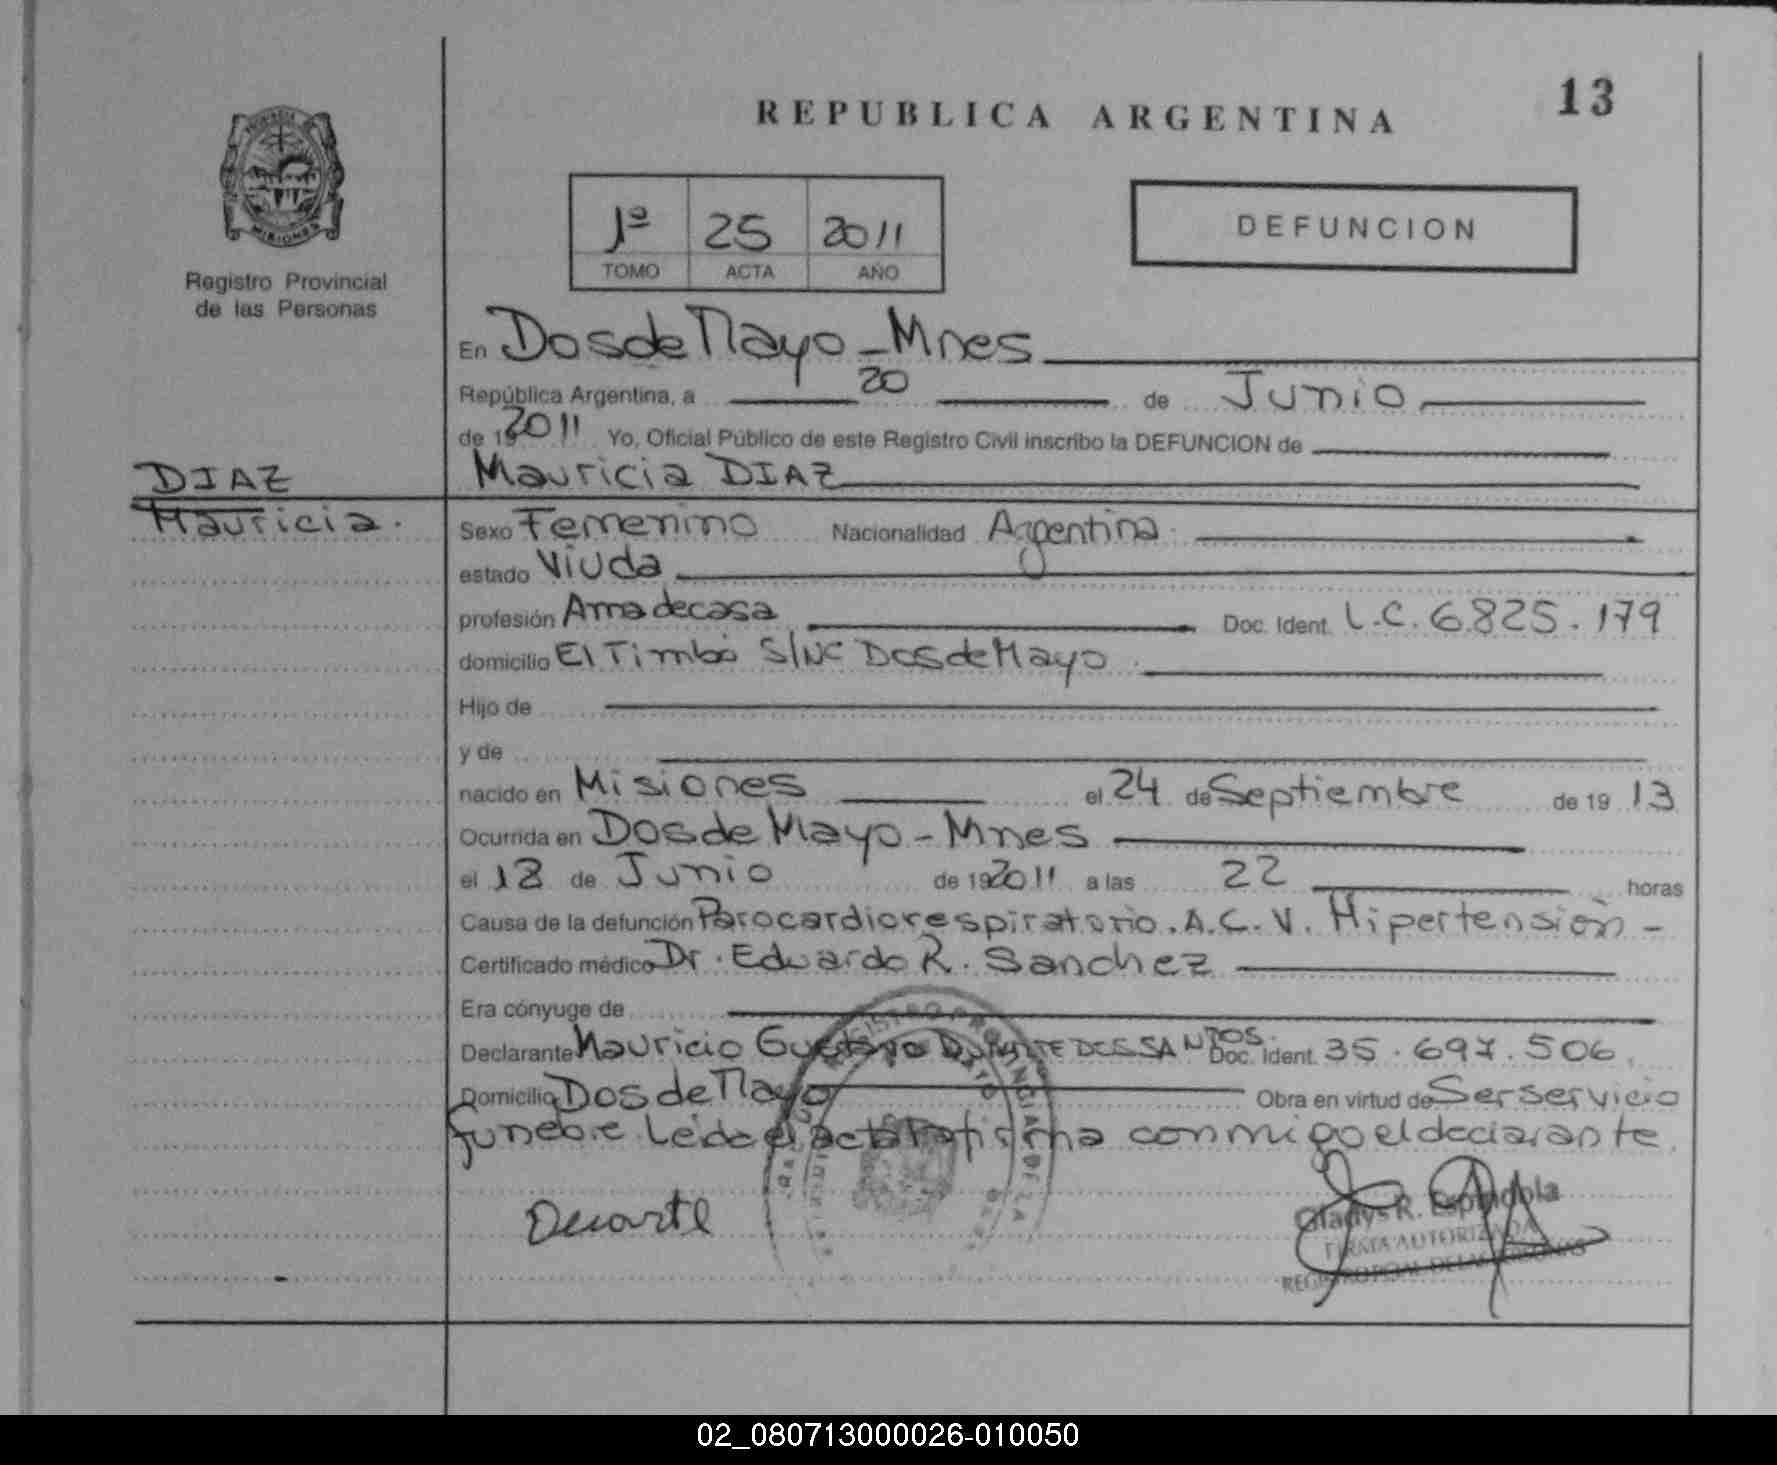 13
REPUBLICA ARGENTINA
1º 25 2011
TOMO ACTA AÑO
DEFUNCION
Registro Provincial
de las Personas
En Dos de Mayo - Mnes
República Argentina, a 20 de Junio
de 19 2011 Yo, Oficial Público de este Registro Civil inscribo la DEFUNCION de
DIAZ
Mauricia.
Mauricia DIAZ
Sexo Femenino Nacionalidad Argentina
estado Viuda
profesión Ama de casa Doc. Ident. L.C. 6.825.179
domicilio El Timbó S/Nº Dos de Mayo
Hijo de
y de
nacido en Misiones el 24 de Septiembre de 19 13
Ocurrida en Dos de Mayo - Mnes
el 18 de Junio de 19 2011 a las 22 horas
Causa de la defunción Parocardiorespiratorio. A.C.V. Hipertensión -
Certificado médico Dr. Eduardo R. Sanchez
Era cónyuge de
Declarante Mauricio Gustavo DUARTE DOS SANTOS Doc. Ident. 35.697.506
Domicilio Dos de Mayo Obra en virtud de Ser servicio
funebre. Leida el acta firma conmigo el declarante.
Duarte
Gladys R. Espindola
FIRMA AUTORIZADA
02_080713000026-010050